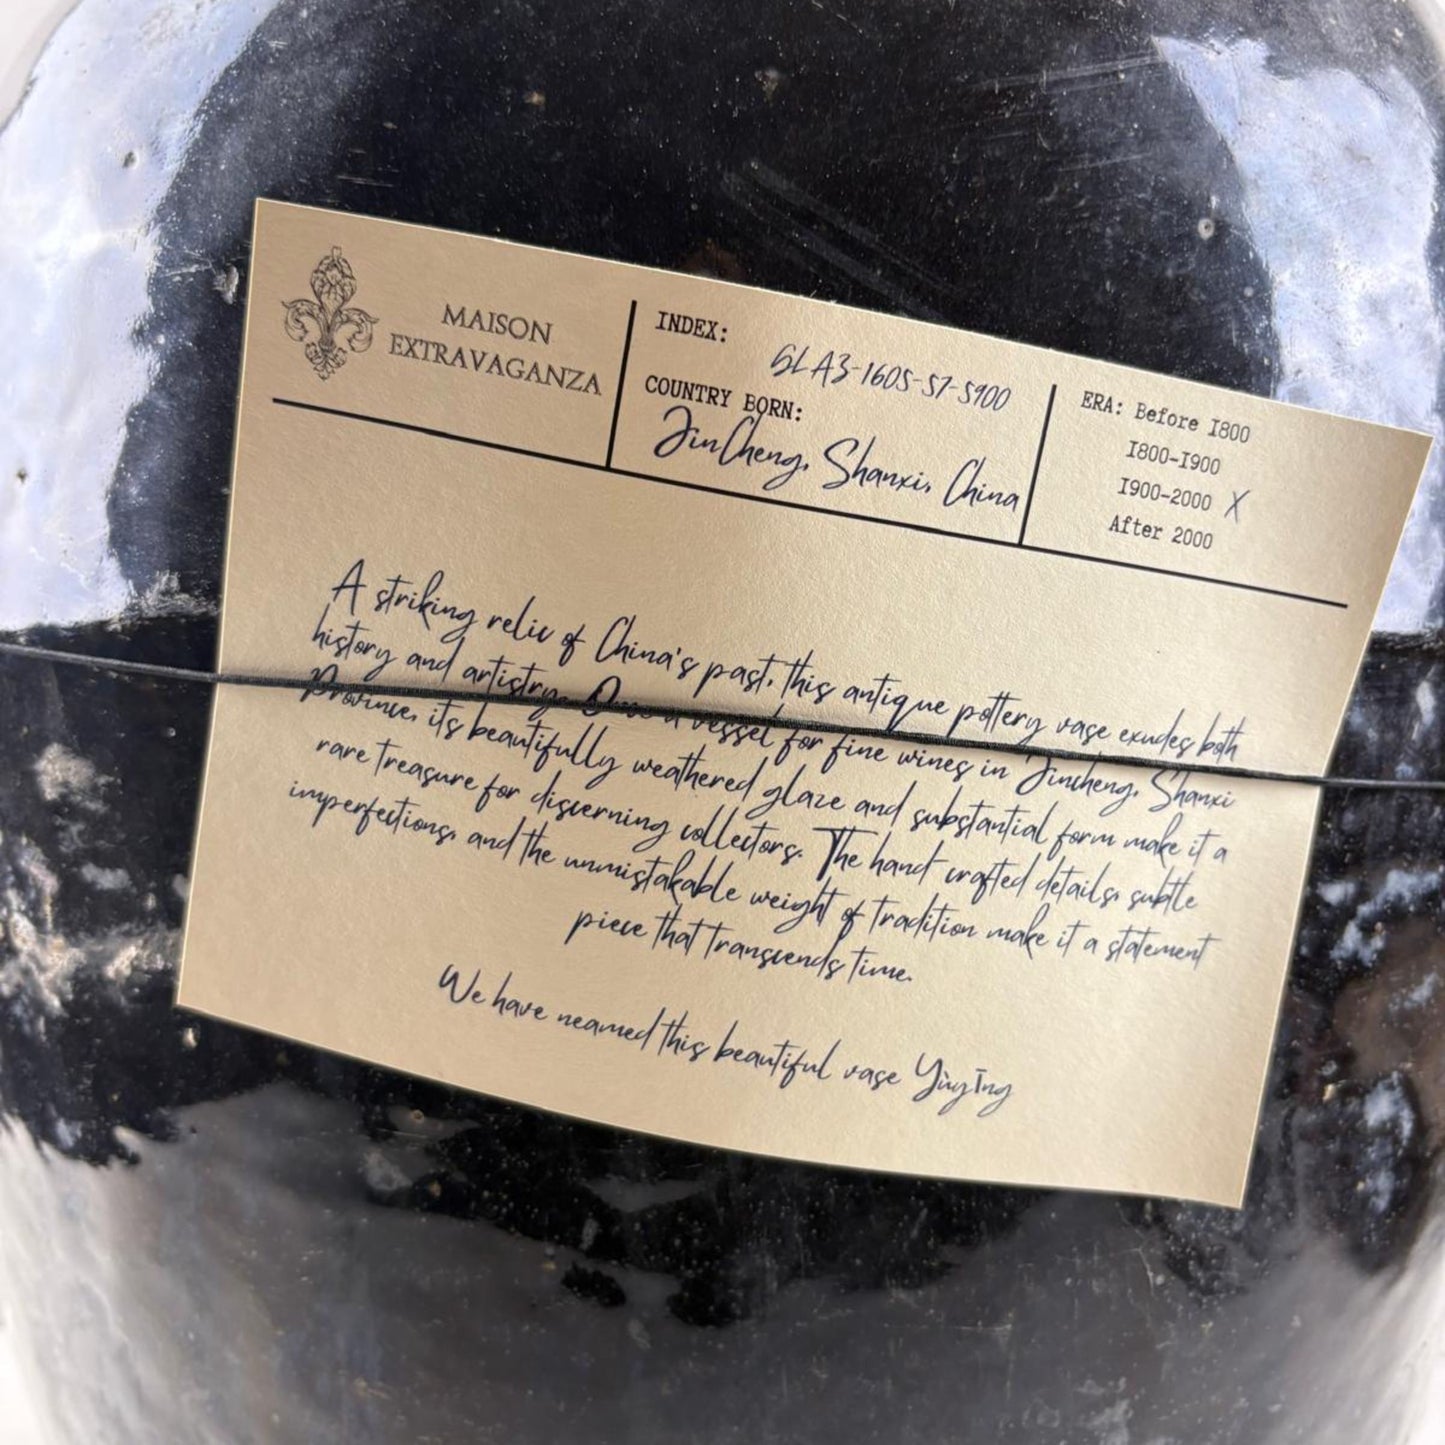 MAISON
EXTRAVAGANZA
INDEX:
SLA3-1605-S7-S900
COUNTRY BORN:
JinCheng, Shanxi, China
ERA: Before 1800
1800-1900
1900-2000 X
After 2000
A striking relic of China's past, this antique pottery vase exudes both
history and artistry. Once a vessel for fine wines in Jincheng, Shanxi
Province, its beautifully weathered glaze and substantial form make it a
rare treasure for discerning collectors. The hand-crafted details, subtle
imperfections, and the unmistakable weight of tradition make it a statement
piece that transcends time.
We have neamed this beautiful vase Yùyīng